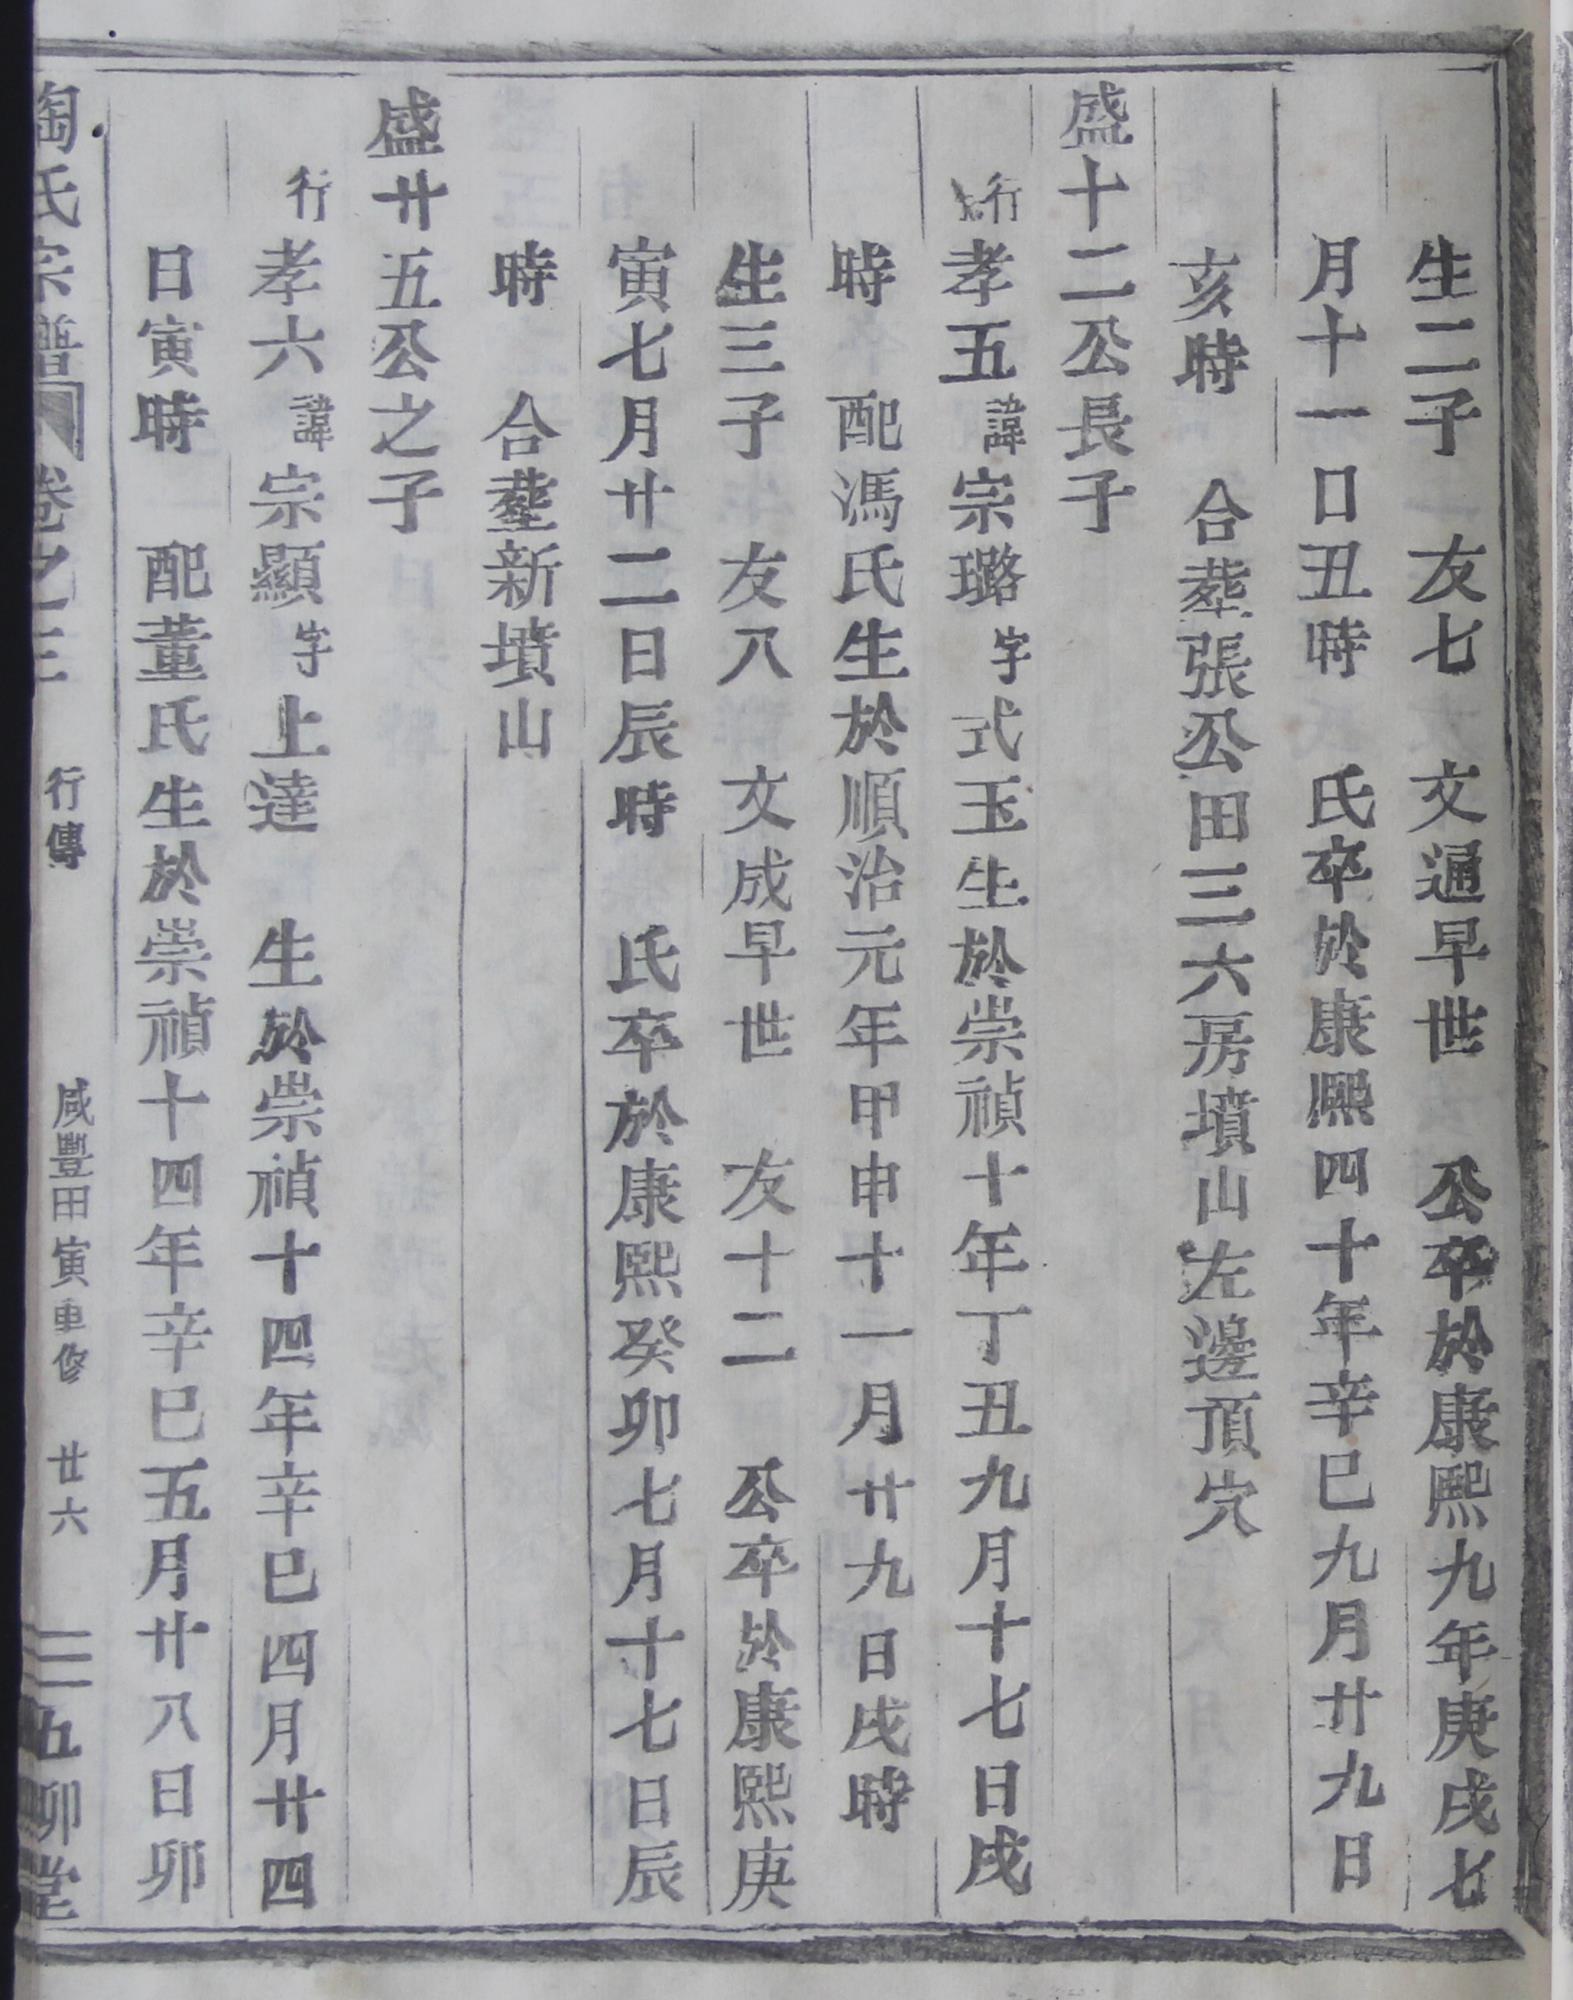 生二子　友七　文通早世　公卒於康熙九年庚戌七
月十一口丑時　氏卒於康熙四十年辛巳九月廿九日
亥時　合塟張公田三六房墳山左邊頂穴
盛十二公長子
行孝五諱宗璐字式玉生於崇禎十年丁丑九月十七日戌
時　配馮氏生於順治元年甲申十一月廿九日戌時
生三子　友八　文成早世　友十二　公卒於康熙庚
寅七月廿二日辰時　氏卒於康熙癸卯七月十七日辰
時　合塟新墳山
盛廿五公之子
行孝六諱宗顯字上達　生於崇禎十四年辛巳四月廿四
日寅時　配董氏生於崇禎十四年辛巳五月廿八日卯
陶氏宗譜　卷之三　行傳　咸豐甲寅重修　廿六　五柳堂